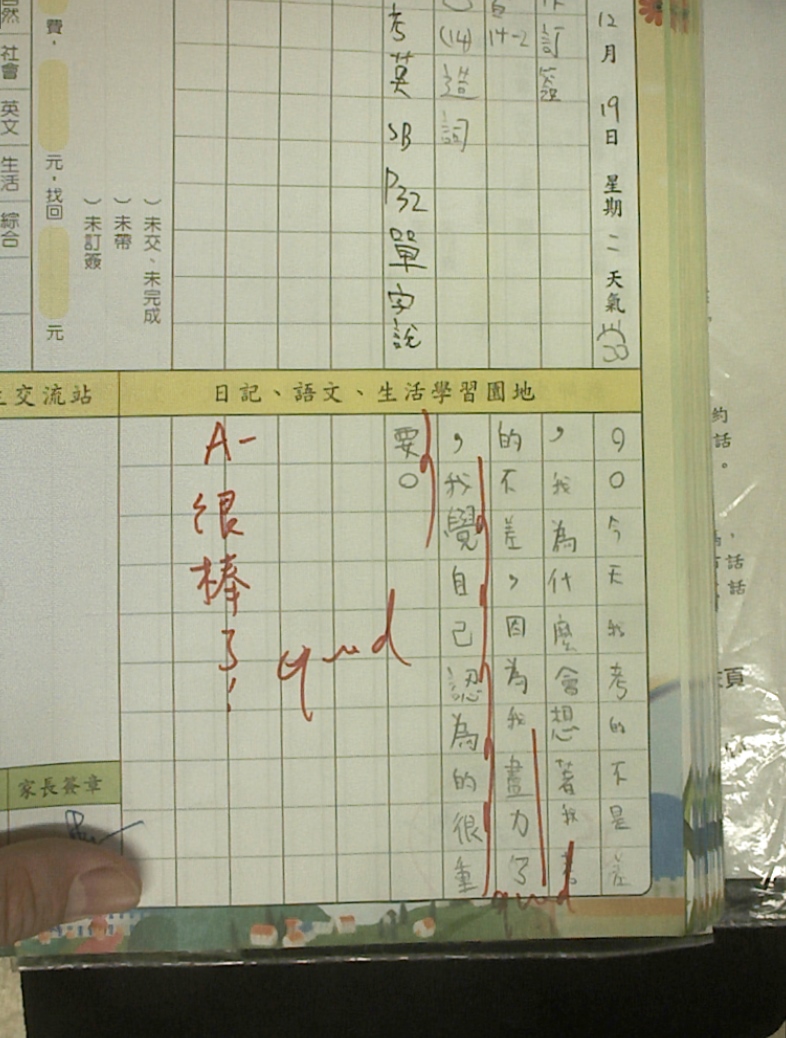 12月19日 星期二 天氣
訂簽
14-2
(14)造詞
考英SB P32單字說
)未交、未完成
)未帶
)未訂簽
費,
元,找回
元
社會
英文
生活
綜合
日記、語文、生活學習園地
交流站
90今天我考的不是差
,我為什麼會想著我考
的不差,因為我盡力了
,我覺自己認為的很重
要。
good
good
A-
很棒了!
家長簽章
約
話。
話
話
頁